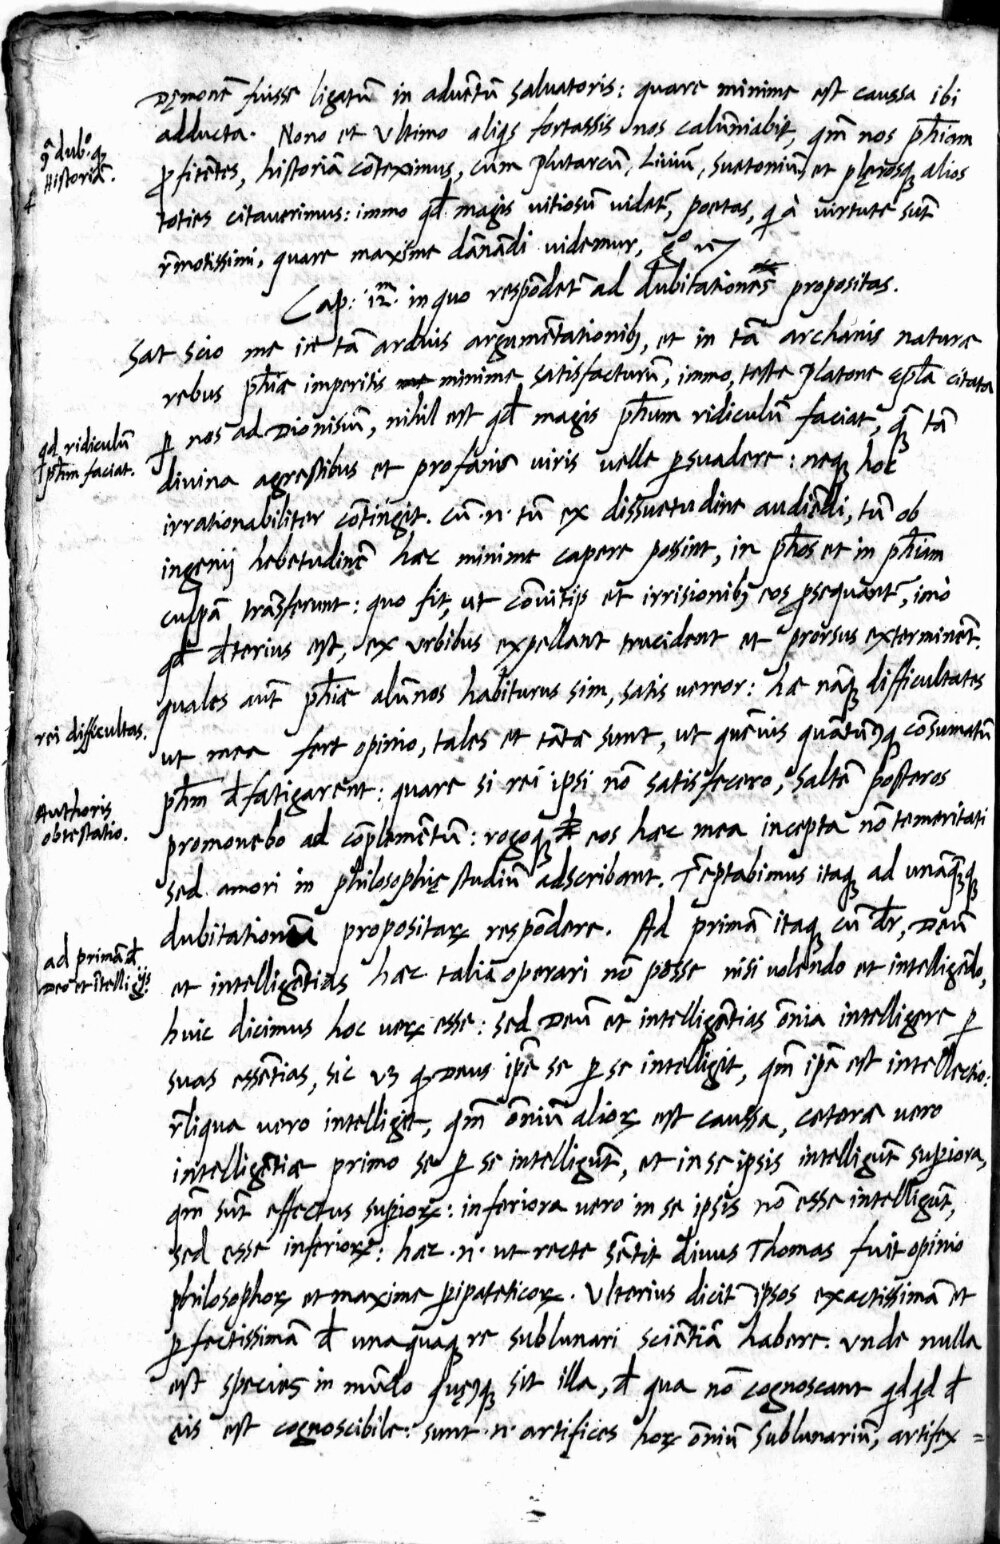 Dęmonẽ fuisse ligatũ in aduẽtũ saluatoris: quare minime est caussa ibi
adducta. Nono et Ultimo aliq̃s fortassis nos calũniabit, qm̃ nos ph̃iam
9ᵃ dubᵒ. qȝ
Historiã.
ꝓfitẽtes, historiã cõteximus, cum Plutarcũ, Liuiũ, Suetoniũ, et plęrosqȝ alios
toties citauerimus: immo qd̃ magis uitiosũ uidet̃, poetas, q̃ à uirtute sũt
r̃motissimi, quare maxime dãnãdi uidemur,
Cap: 12.ᵐ in quo respõdet̃ ad dubitationes propositas.
Sat scio me in tã arduis argumẽtationibȝ, et in tã archanis naturæ
rebus ph̃iæ imperitis minime satisfacturũ, immo, teste Platone ep̃la citata
ꝑ nos ad Dionisiũ, nihil est qd̃ magis ph̃um ridiculũ faciat, q̃ȝ tã
qd ridiculũ
ph̃m faciat.
diuina agrestibus et profanis uiris uelle ꝑsuadere: neqȝ hoc
irrationabiliter cõtingit. cũ .n. tũ ex dissuetudine audiẽdi, tũ ob
ingenij hebetudinẽ hæc minime capere possint, in ph̃os et in ph̃iam
culpã trãsferunt: quo fit, ut cõuitijs et irrisionibȝ eos ꝑsequãnt̃, imò
qd̃ d̃terius est, ex urbibus expellant trucident et prorsus exterminẽt.
quales aũt ph̃iæ alũnos habiturus sim, satis uereor: hæ nãqȝ difficultates
rei difficultas.
ut mea fert opinio, tales et tãtæ sunt, ut quẽuis quãtũcqȝ cõsumatũ
ph̃m d̃fatigarent: quare si rei ipsi nõ satisfecero, saltẽ posteros
Authoris
obtestatio.
promouebo ad cõplemẽtũ: rogoqȝ eos hæc mea incepta nõ temeritati
sed amori in philosophię studiũ adscribant. Tẽptabimus itaqȝ ad unãq̃ȝqȝ
dubitationũ propositaꝝ respõdere. Ad primã itaqȝ cũ d̃r, Deũ
ad primã d̃
Deo et ĩtelligẽtijs.
et intelligẽtias hæc talia operari nõ posse nisi uolẽdo et intelligẽdo,
huic dicimus hoc ueꝝ esse: sed Deũ et intelligẽtias õnia intelligere ꝑ
suas essẽtias, sic uȝ q̃ Deus ip̃e se ꝑ se intelligit, qm̃ ip̃e est intellectio:
r̃liqua uero intelligit, qm̃ õniũ alioꝝ est caussa, cæteræ uero
intelligẽtiæ primo se ꝑ se intelligũt, et in se ipsis intelligũt suꝑiora,
qm̃ sũt effectus suꝑioꝝ: inferiora uero in se ipsis nõ esse intelligũt,
sed esse inferioꝝ: hæc .n. ut recte sẽtit diuus Thomas fuit opinio
philosophoꝝ et maxime ꝑipateticoꝝ. Ulterius dicit̃ ipsos exactissimã et
ꝑfectissimã d̃ unaquaqȝ re sublunari sciẽtiã habere. Unde nulla
est species in mũdo quęcqȝ sit illa, d̃ qua nõ cognoscant qdqd d̃
eis est cognoscibile: sunt .n. artifices hoꝝ õniũ sublunariũ, artifex =